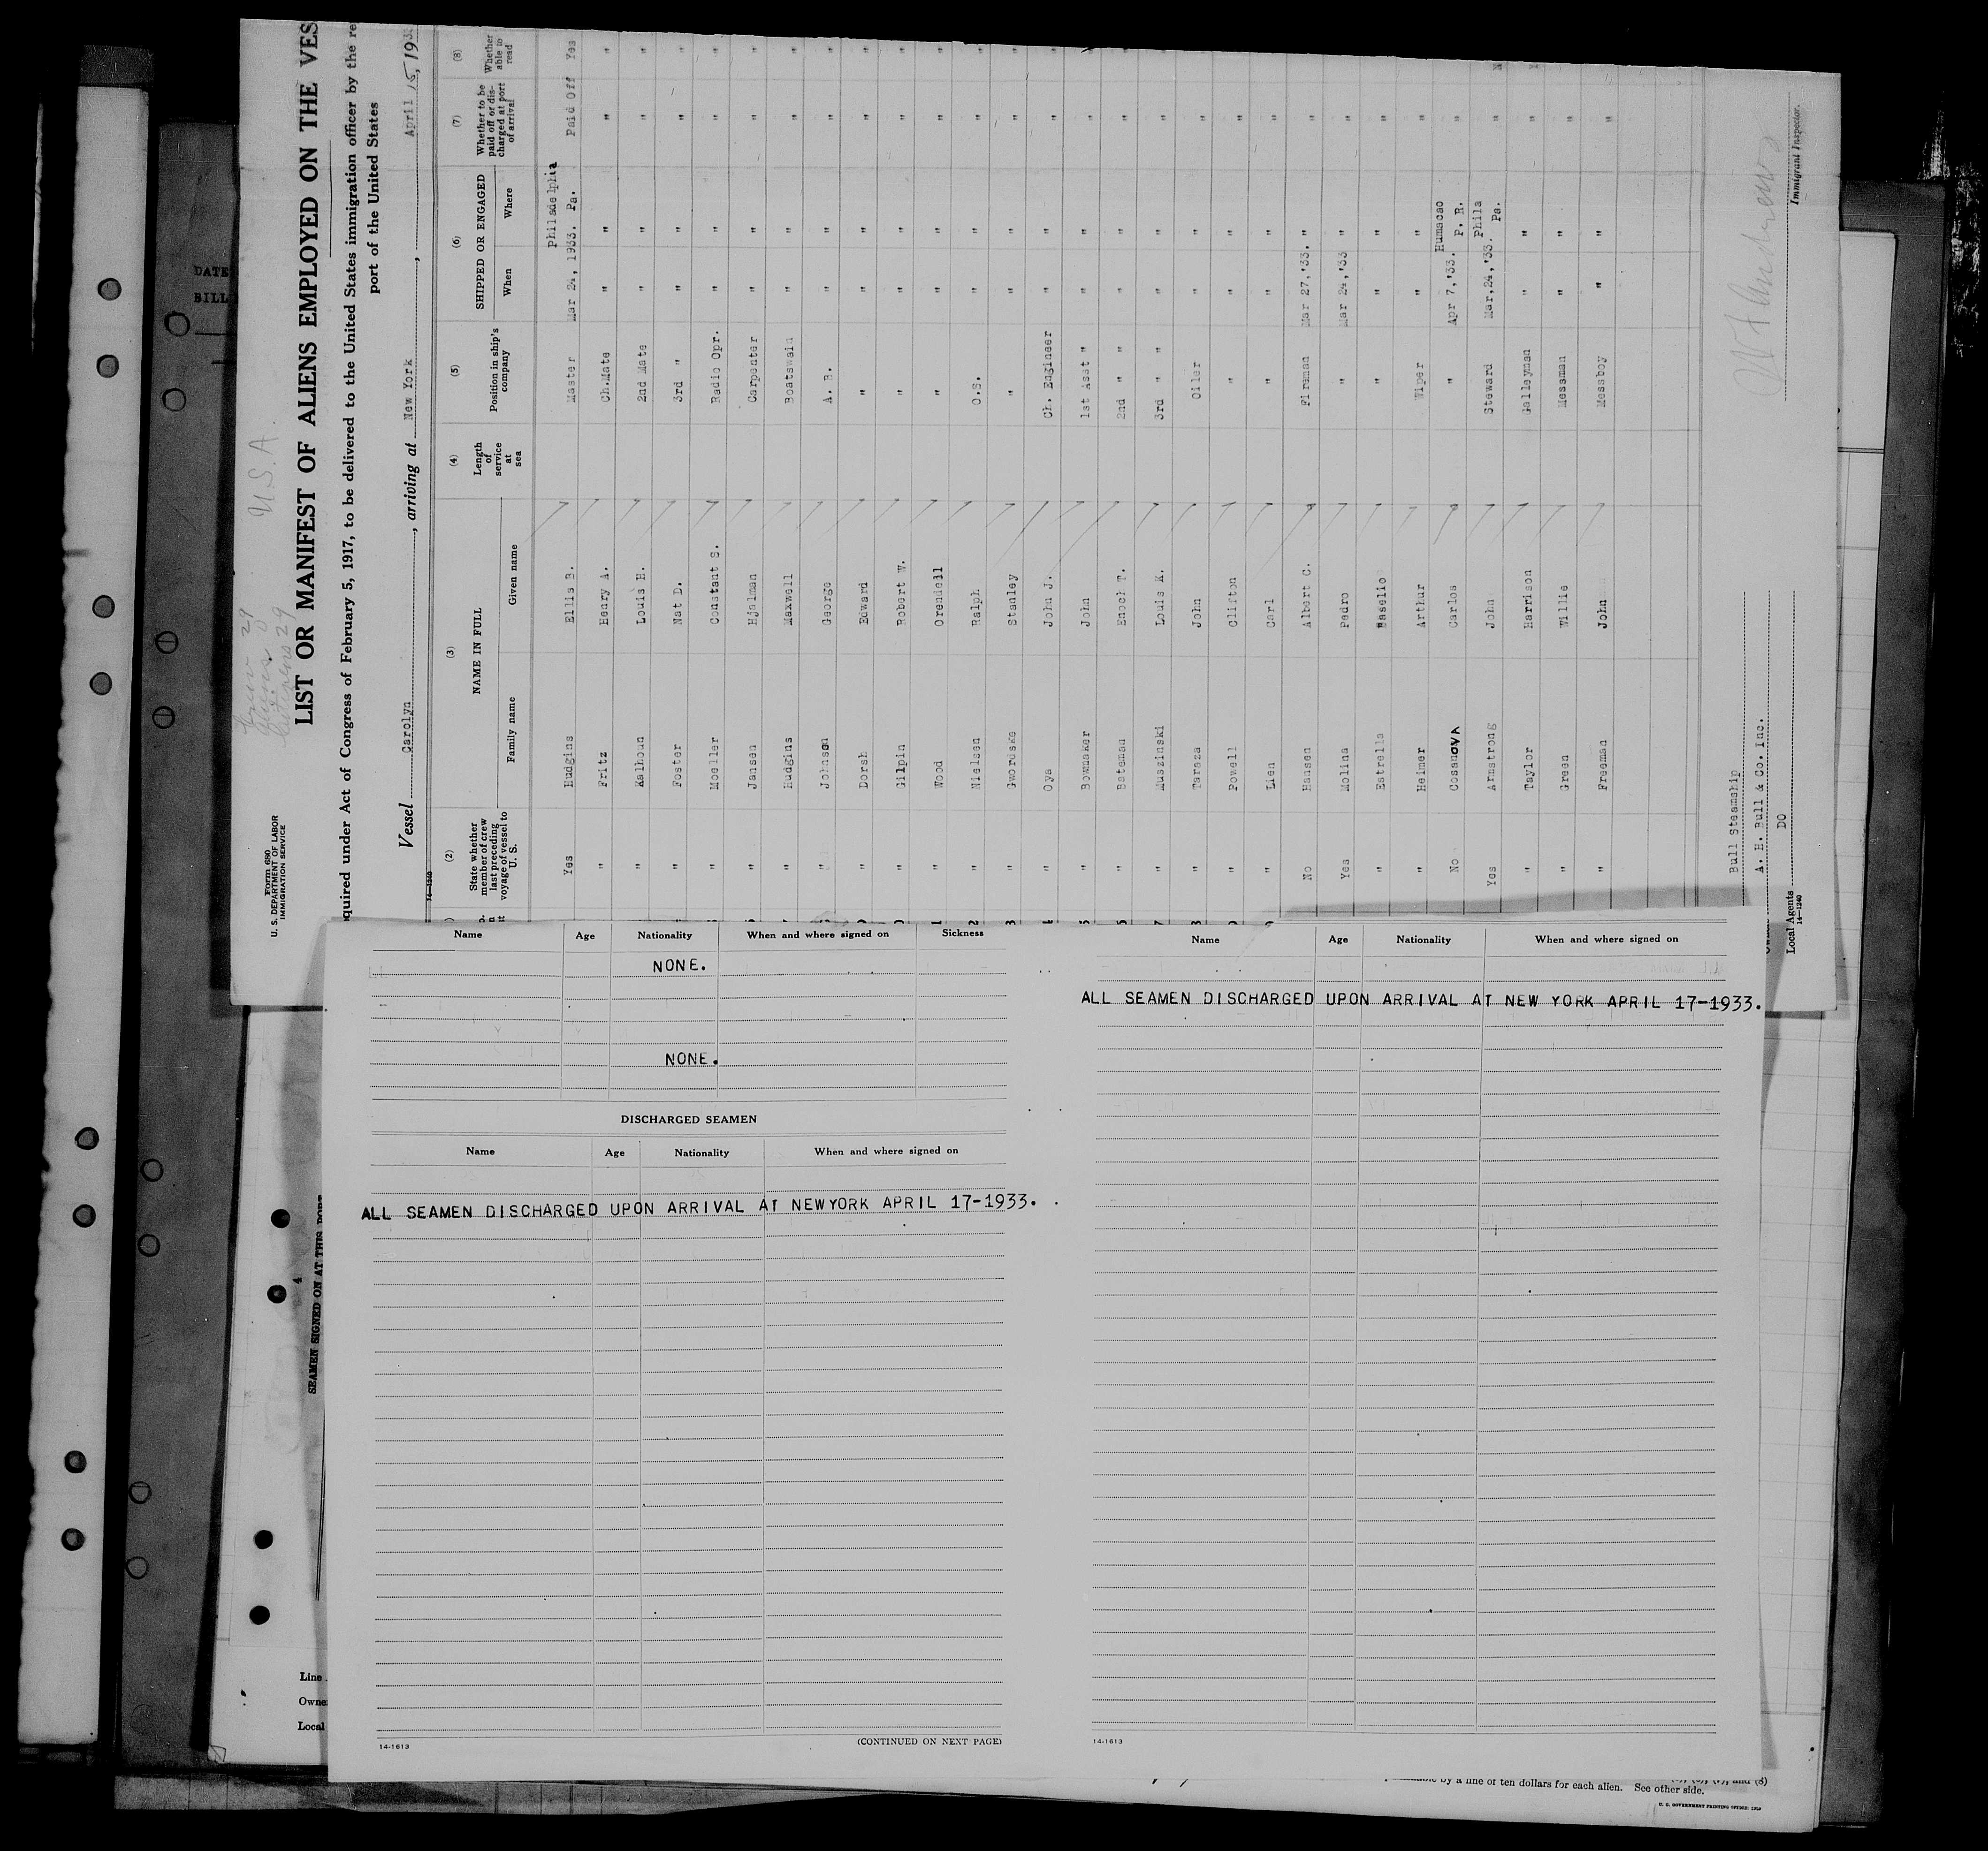 Form 680
U. S. DEPARTMENT OF LABOR
IMMIGRATION SERVICE
U.S.A.
LIST OR MANIFEST OF ALIENS EMPLOYED ON THE VES
quired under Act of Congress of February 5, 1917, to be delivered to the United States immigration officer by the re
port of the United States
Vessel Carolyn, arriving at New York, April 15, 193
14—1240
(2) (3) (4) (5) (6) (7) (8)
State whether member of crew last preceding voyage of vessel to U. S.
NAME IN FULL
Family name Given name
Length of service at sea
Position in ship's company
SHIPPED OR ENGAGED
When Where
Whether to be paid off or discharged at port of arrival
Whether able to read
Yes Hudgins Ellis B. Master Mar 24, 1933. Philadelphia Pa. Paid Off Yes
" Fritz Henry A. Ch.Mate " " " "
" Kalhoun Louis H. 2nd Mate " " " "
" Foster Nat D. 3rd " " " " "
" Moeller Constant S. Radio Opr. " " " "
" Jansen Hjalman Carpenter " " " "
" Hudgins Maxwell Boatswain " " " "
" Johnson George A. B. " " " "
" Dorsh Edward " " " " "
" Gilpin Robert W. " " " " "
" Wood Orendell " " " " "
" Nielsen Ralph O.S. " " " "
" Gwordske Stanley " " " " "
" Oya John J. Ch. Engineer " " " "
" Bowmaker John 1st Asst " " " " "
" Bateman Enoch T. 2nd " " " " " "
" Muszinski Louis K. 3rd " " " " " "
" Taraza John Oiler " " "
" Powell Clifton " " " "
" Lien Carl " " " "
No Hansen Albert C. Fireman Mar 27,'33. " "
Yes Molina Pedro " Mar 24,'33 " "
" Estrella Baselio " " " "
" Heimer Arthur Wiper " " "
No Cosanova Carlos " Apr 7,'33. Humacao P. R. "
Yes Armstrong John Steward Mar,24,'33. Phila Pa. "
" Taylor Harrison Galleyman " " "
" Green Willie Messman " " "
" Freeman John Messboy " " "
Bull Steamship
A. H. Bull & Co. Inc.
Local Agents DO
14—1240
Immigrant Inspector.
DATE
BILL
4
SEAMEN SIGNED ON AT THIS PORT
Line
Owne
Local
Name Age Nationality When and where signed on Sickness
NONE.
NONE.
DISCHARGED SEAMEN
Name Age Nationality When and where signed on
ALL SEAMEN DISCHARGED UPON ARRIVAL AT NEWYORK APRIL 17-1933.
(CONTINUED ON NEXT PAGE)
14-1613
Name Age Nationality When and where signed on
ALL SEAMEN DISCHARGED UPON ARRIVAL AT NEW YORK APRIL 17-1933.
14-1613
by a line of ten dollars for each alien. See other side.